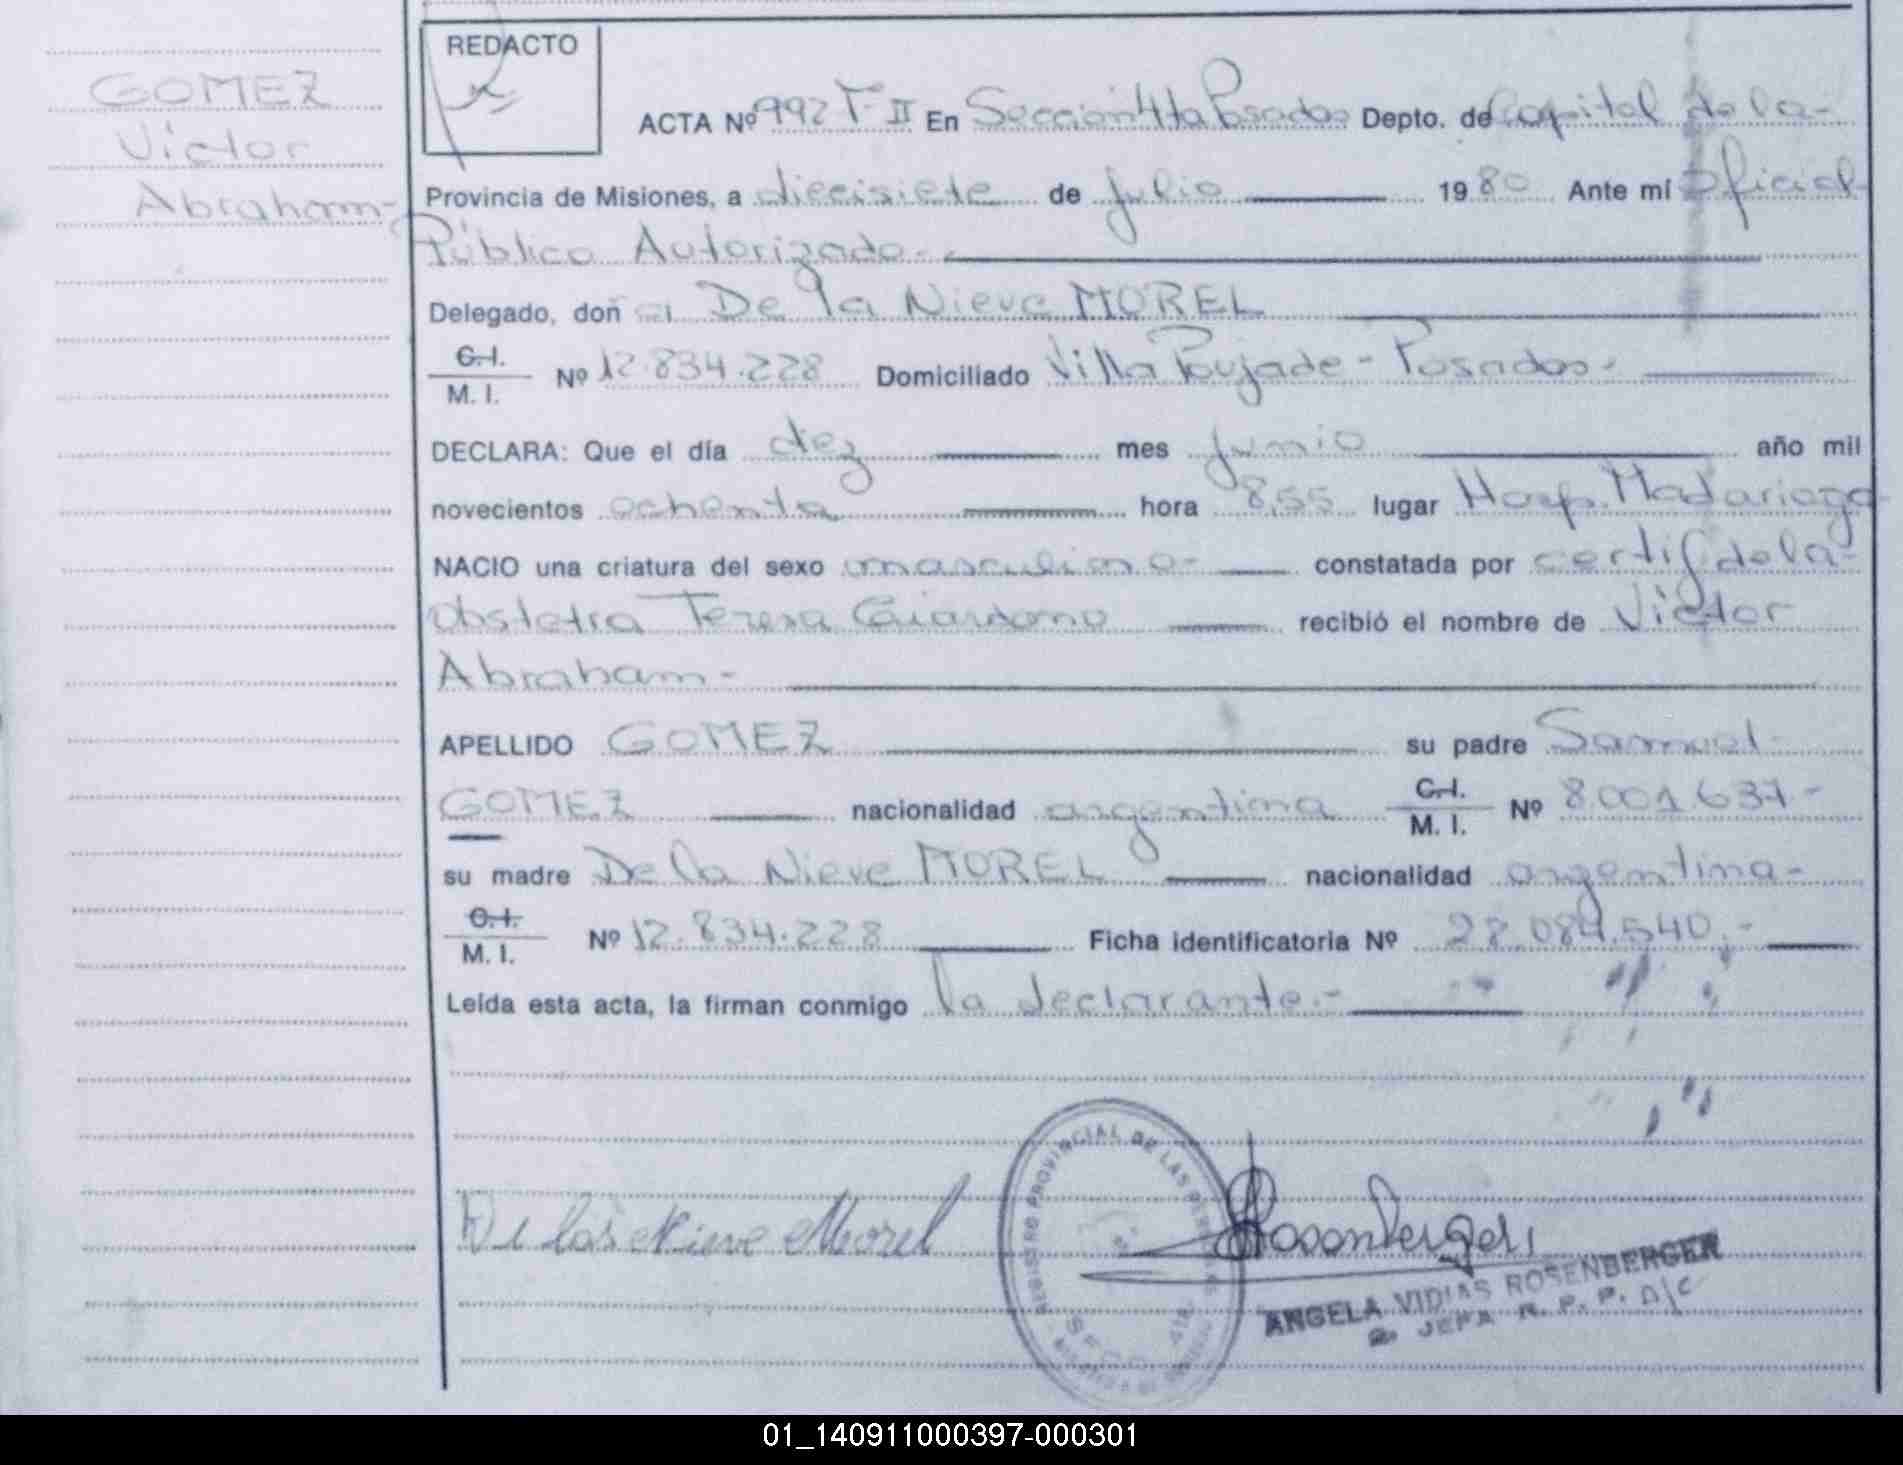 GOMEZ
Victor
Abraham-
REDACTO
ACTA Nº 992 T-II En Sección 4ta Posadas Depto. de Capital de la-
Provincia de Misiones, a diecisiete de julio 1980 Ante mí Oficial
Público Autorizado.-
Delegado, doñ a De la Nieve MOREL
C.I.
M. I. Nº 12.834.228 Domiciliado Villa Poujade - Posadas.
DECLARA: Que el día diez mes junio año mil
novecientos ochenta hora 8,55 lugar Hosp. Madariaga
NACIO una criatura del sexo masculino- constatada por certif de la-
obstetra Teresa recibió el nombre de Victor
Abraham-
APELLIDO GOMEZ su padre Samuel
GOMEZ nacionalidad argentina C.I.
M. I. Nº 8.001.637-
su madre De la Nieve MOREL nacionalidad argentina-
C.I.
M. I. Nº 12.834.228 Ficha identificatoria Nº 28.084.540.-
Leída esta acta, la firman conmigo la declarante.-
De las Nieve Morel
REGISTRO PROVINCIAL DE LAS PERSONAS
Rosenberger
ANGELA VIDIAS ROSENBERGER
JEFA R. P. P. A/C
01_140911000397-000301